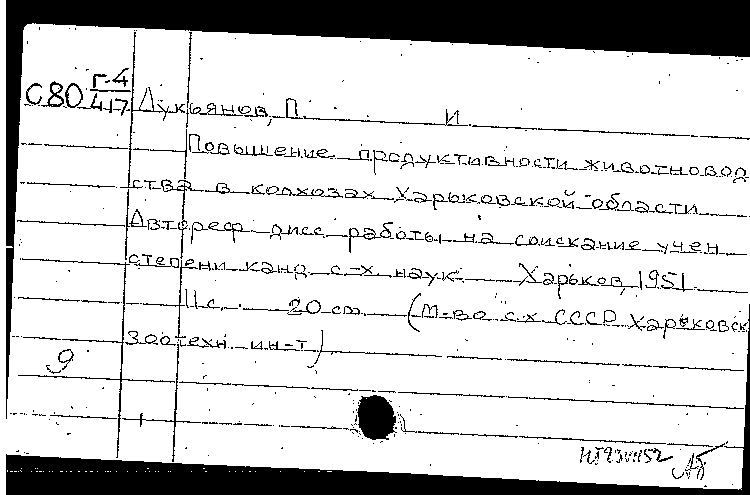 С80 Г-4/417 Лукьянов, П. И
Повышение продуктивности животновод
ства в колхозах Харьковской области
Автореф дисс. работы на соискание учен
степени канд с-х. наук. Харьков, 1951
11 с. 20 cm (М-во с.х СССР Харьковск
зоотехн ин-т)
9